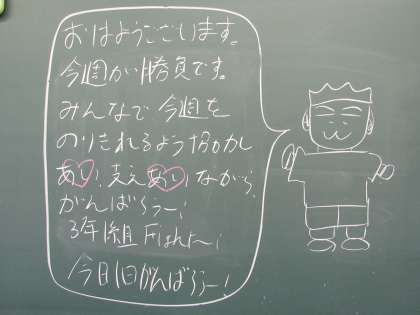 おはようございます。
今週が勝負です。
みんなで今週を
のりきれるよう協力し
あい、支えあいながら、
がんばろうー!
3年 組 Fight〜!
今日1日がんばろうー!